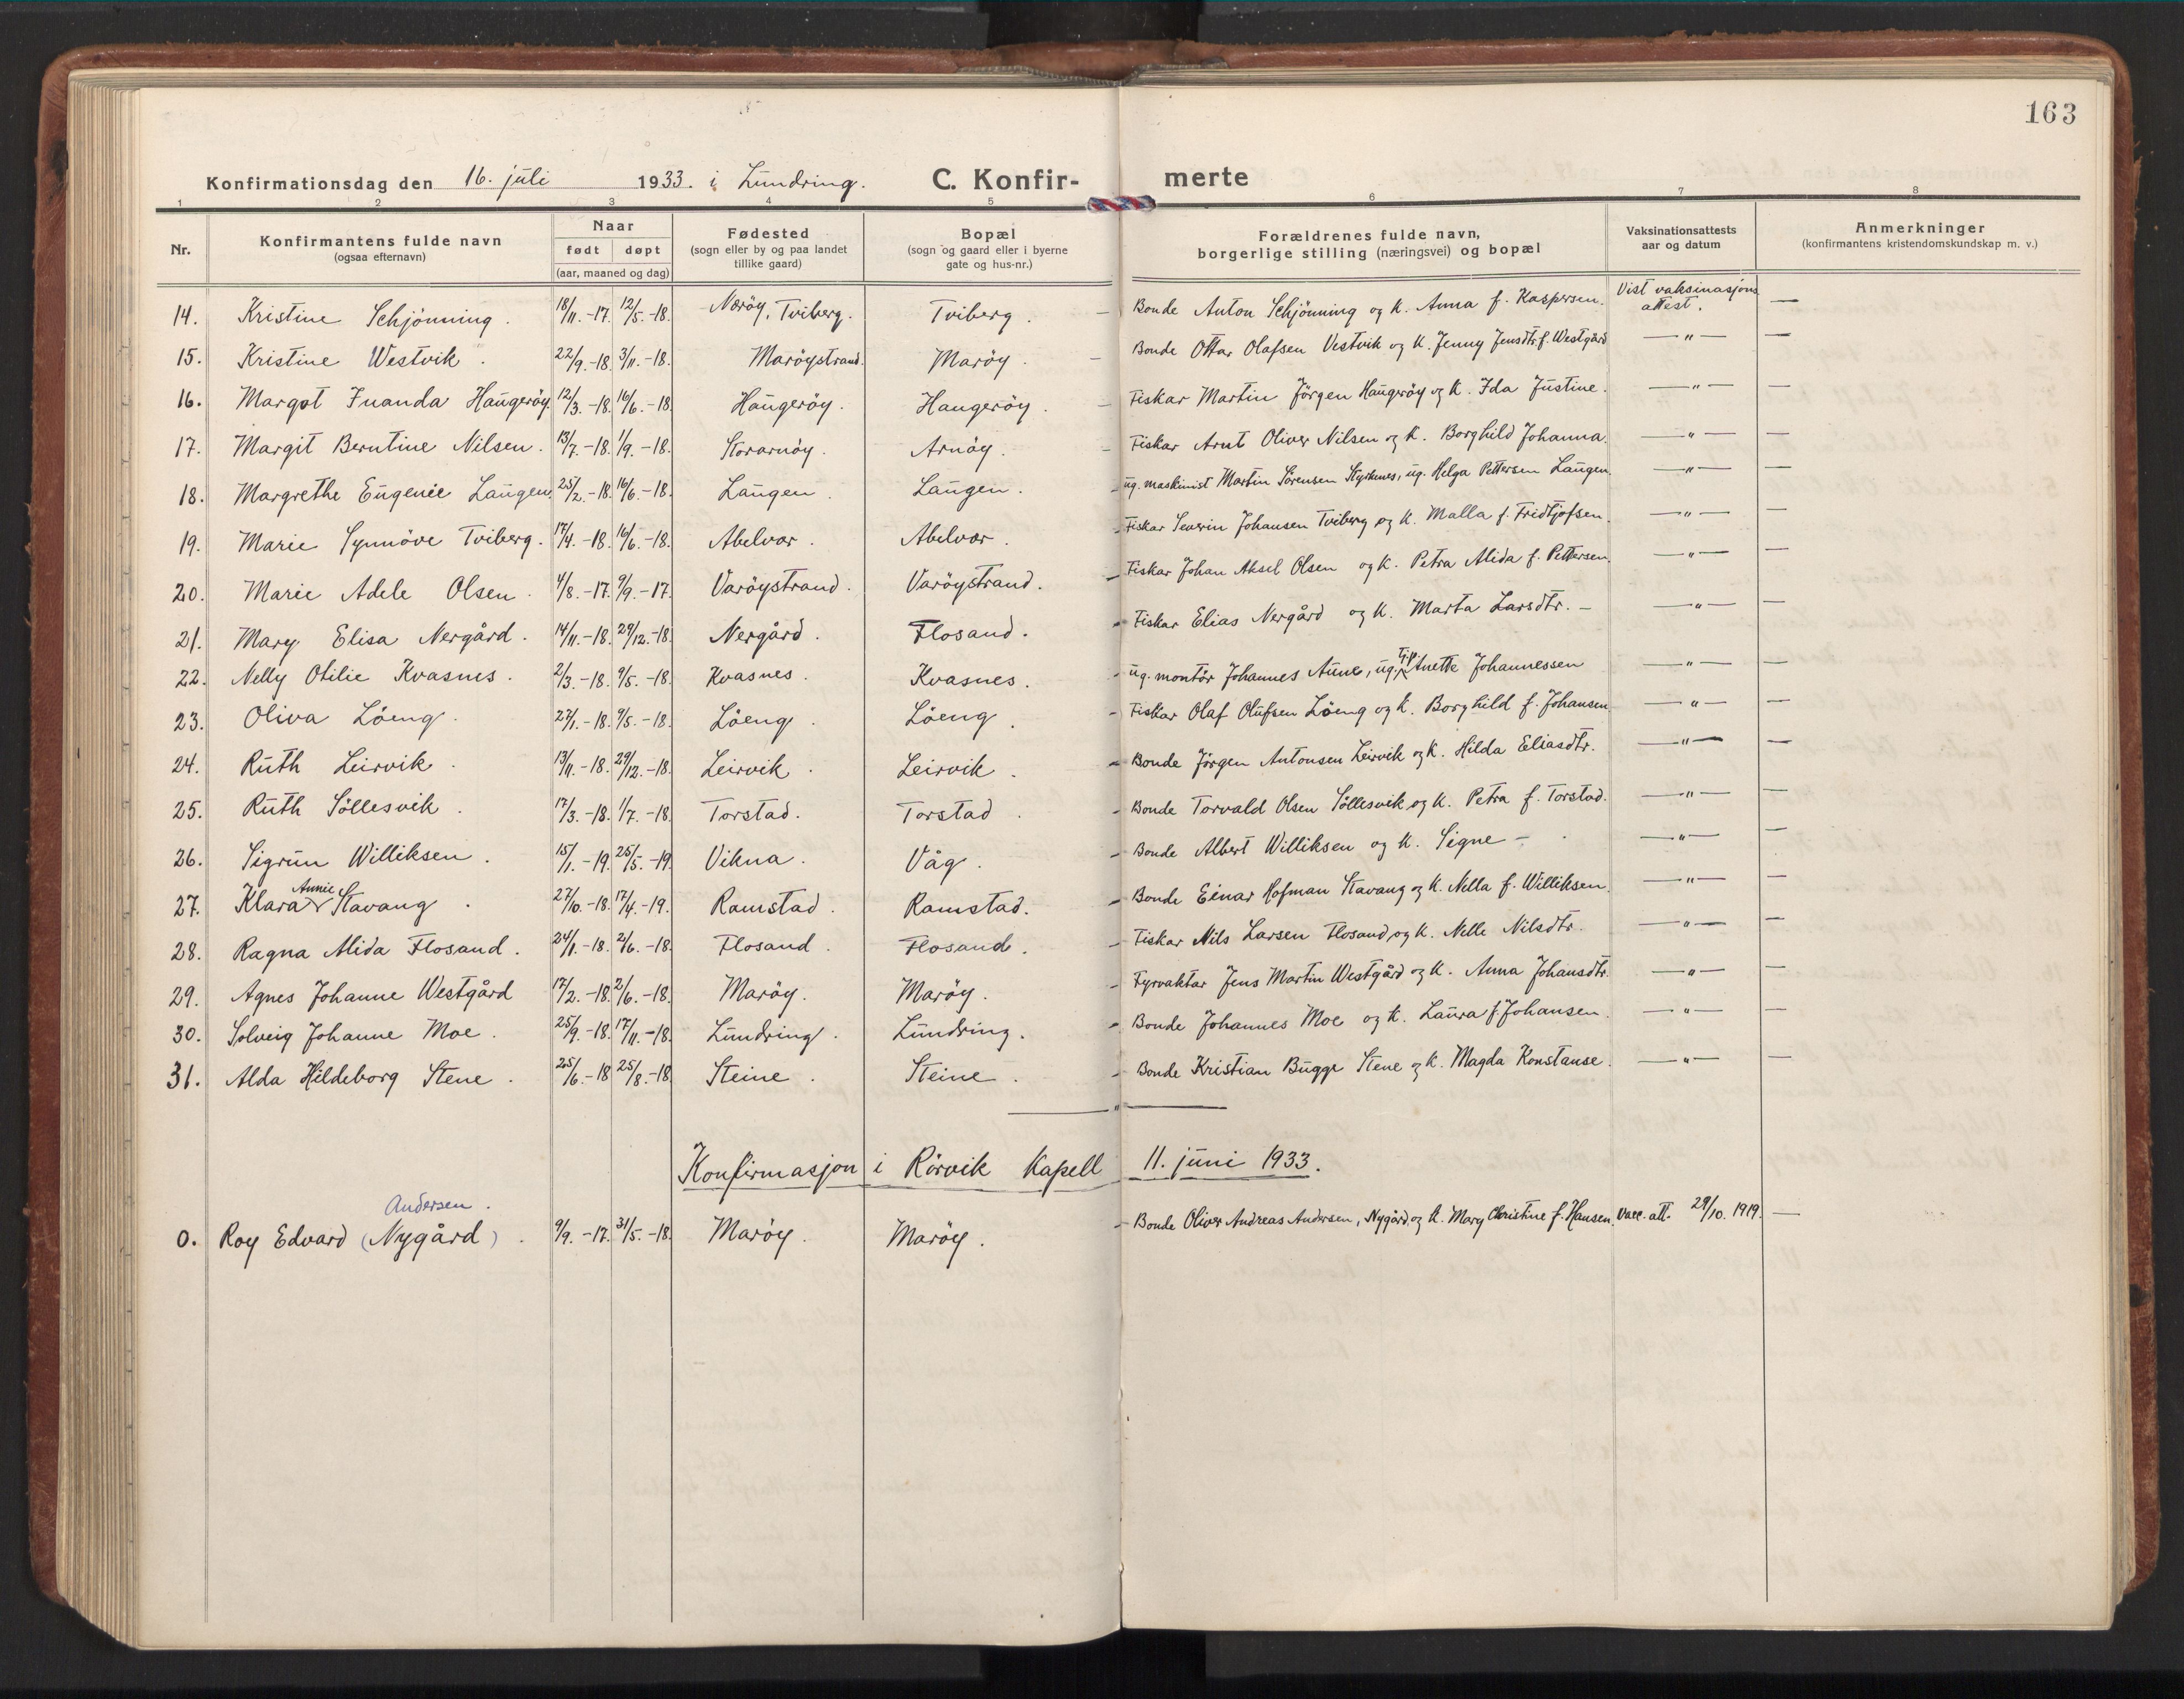 163
Konfirmationsdag den 16. juli 1933. i Lundring. C. Konfir- merte
1 2 3 4 5 6 7 8
Nr. Konfirmantens fulde navn (ogsaa efternavn) Naar født døpt (aar, maaned og dag) Fødested (sogn eller by og paa landet tillike gaard) Bopæl (sogn og gaard eller i byerne gate og hus-nr.) Forældrenes fulde navn, borgerlige stilling (næringsvei) og bopæl Vaksinationsattests aar og datum Anmerkninger (konfirmantens kristendomskundskap m. v.)
14. Kristine Schjönning. 18/11.-17. 12/5.-18. Næröy, Tviberg. Tviberg. – Bonde Anton Schjönning og k. Anna f. Kaspersen. Vist vaksinasjons attest. —
15. Kristine Westvik. 22/9.-18. 3/11.-18. Maröystrand. Maröy. – Bonde Ottar Olafsen Vestvik og k. Jenny Jensdtr. f. Westgård —"— —
16. Margot Inanda Haugeröy. 12/3.-18. 16/6.-18. Haugeröy. Haugeröy. – Fiskar Martin Jörgen Haugeröy og k. Ida Justine. —"— —
17. Margit Berntine Nilsen. 13/7.-18. 1/9.-18. Storarnöy. Arnöy. – Fiskar Arnt Oliver Nilsen og k. Borghild Johanna. —"— —
18. Margrethe Eugenie Laugen. 25/2.-18. 16/6.-18. Laugen. Laugen. – ug. maskinist Martin Sörensen Styrknes, ug. Helga Pettersen Laugen. —"— —
19. Marie Synnöve Tviberg. 17/4.-18. 16/6.-18. Abelvær. Abelvær. – Fiskar Severin Johansen Tviberg og k. Malla f. Fridtjofsen. —"— —
20. Marie Adele Olsen. 4/8.-17. 9/9.-17. Varöystrand. Varöystrand. – Fiskar Johan Aksel Olsen og k. Petra Alida f. Pettersen. —"— —
21. Mary Elisa Nergård. 14/11.-18. 29/12.-18. Nergård. Flosand. – Fiskar Elias Nergård og k. Marta Larsdtr. – —"— —
22. Nelly Otilie Kvasnes. 2/3.-18. 9/5.-18. Kvasnes. Kvasnes. – ug. montör Johannes Aune, ug. Tj.p. Anette Johannessen —"— —
23. Oliva Löeng. 27/1.-18. 9/5.-18. Löeng. Löeng. – Fiskar Olaf Olufsen Löeng og k. Borghild f. Johansen. —"— —
24. Ruth Leirvik. 13/11.-18. 29/12.-18. Leirvik. Leirvik. – Bonde Jörgen Antonsen Leirvik og k. Hilda Eliasdtr. —"— —
25. Ruth Söllesvik. 17/3.-18. 1/7.-18. Torstad. Torstad. – Bonde Torvald Olsen Söllesvik og k. Petra f. Torstad. —"— —
26. Sigrun Williksen. 15/1.-19. 25/5.-19. Vikna. Våg. – Bonde Albert Williksen og k. Signe – . —"— —
27. Klara Annie Stavang. 27/10.-18. 17/4.-19. Ramstad. Ramstad. – Bonde Einar Hofman Stavang og k. Nella f. Williksen. —"— —
28. Ragna Alida Flosand. 24/1.-18. 2/6.-18. Flosand. Flosand. – Fiskar Nils Larsen Flosand, og k. Nelle Nilsdtr. —"— —
29. Agnes Johanne Westgård 17/2.-18. 2/6.-18. Maröy. Maröy. – Fyrvaktar Jens Martin Westgård og k. Anna Johansdtr. —"— —
30. Solveig Johanne Moe. 25/9.-18. 17/11.-18. Lundring. Lundring. – Bonde Johannes Moe og k. Laura f. Johansen. —"— —
31. Alda Hildeborg Stene. 25/6.-18. 25/8.-18. Steine. Steine. – Bonde Kristian Bugge Stene og k. Magda Konstanse. —"— —
—"—
Konfirmasjon i Rörvik Kapell 11. juni 1933.
Andersen.
0. Roy Edvard (Nygård). 9/9.-17. 31/5.-18. Maröy. Maröy. – Bonde Oliver Andreas Andersen, Nygård og k. Mary Christine f. Hansen. Vacc. att. 29/10. 1919. —